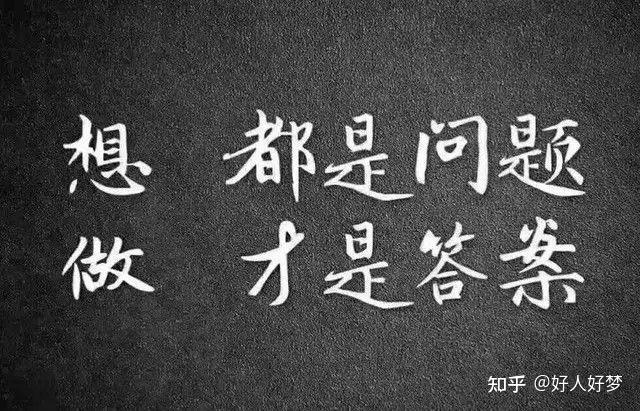 想 都是问题
做 才是答案
知乎 @好人好梦